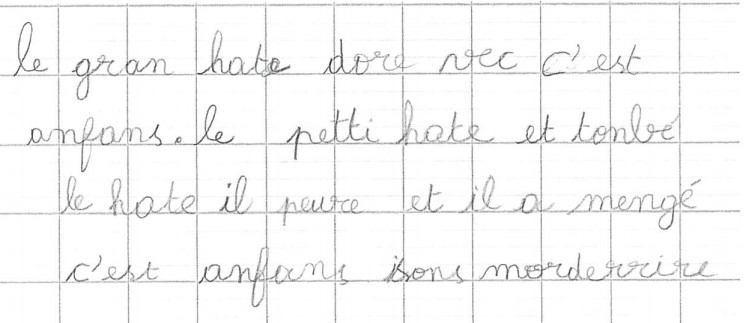 le gran hate dore vec c'est
anfans. le petti hate et tonbé
le hate il peure et il a mengé
c'est anfans isons morderrire